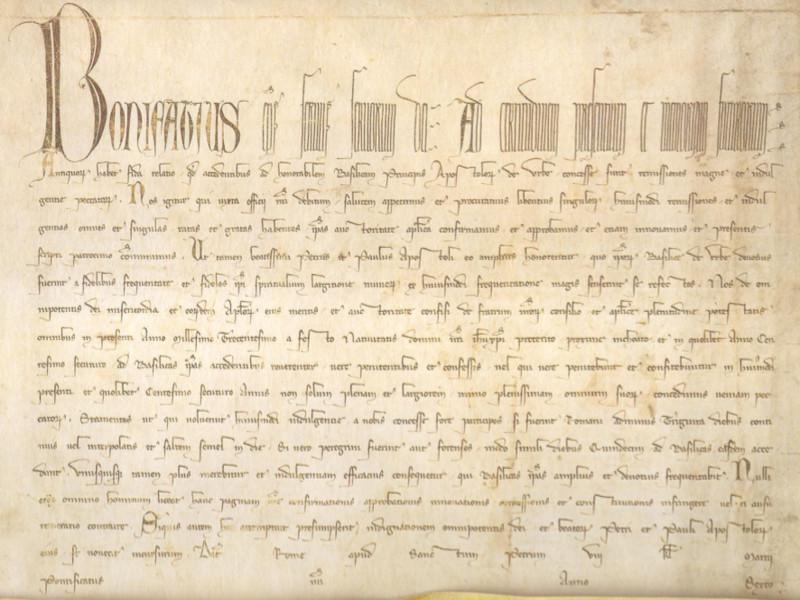 Bonifatius eps servus servorum dei. Ad certitudinem presentium et memoriam futurorum
Antiquor habet fida relatio qd accedentibus ad honorabilem Basilicam Principis Apostolor de Urbe concesse sunt remissiones magne et indul
gentie peccator. Nos igitur qui iuxta officij nri debitum salutem appetimus et procuramus libentius singulor huiusmodi remissiones et indul
gentias omnes et singulas ratas et gratas habentes ipsas auctoritate aplica confirmamus et approbamus et etiam innovamus et presentis
scripti patrocinio communimus. Ut tamen beatissimi Petrus et Paulus Apostoli eo amplius honorentur quo ipsor Basilice de Urbe devotius
fuerint a fidelibus frequentate et fideles ipsi spiritualium largitione muner ex huiusmodi frequentatione magis senserint se refectos. Nos de om
nipotentis dei misericordia et eordem Aplor eius meritis et auctoritate confisi de fratrum nror consilio et aplice plenitudine potestatis
omnibus in presenti Anno millesimo Trecentesimo a festo Nativitatis domini nri ihu xpi preterito proxime inchoato et in quolibet Anno Cen
tesimo secuturo ad Basilicas ipsas accedentibus reverenter vere penitentibus et confessis vel qui vere penitebunt et confitebuntur in huiusmodi
presenti et quolibet Centesimo secuturo Annis non solum plenam et largiorem immo plenissimam omnium suor concedimus veniam pec
cator. Statuentes ut qui voluerint huiusmodi indulgentie a nobis concesse fore participes si fuerint Romani ad minus Triginta diebus conti
nuis vel interpolatis et saltem semel in die. Si vero peregrini fuerint aut forenses modo simili diebus Quindecim ad Basilicas easdem acce
dant. Unusquisq tamen plus merebitur et indulgentiam efficacius consequetur qui Basilicas ipsas amplius et devotius frequentabit. Nulli
ergo omnino hominum liceat hanc paginam nre confirmationis approbationis innovationis concessionis et constitutionis infringere vel ei ausu
temerario contraire. Siquis autem hoc attemptare presumpserit indignationem omnipotentis dei et beator Petri et Pauli Apostolor
eius se noverit incursurum. Dat Rome apud Sanctum Petrum viij kl Martij
Pontificatus nri Anno Sexto